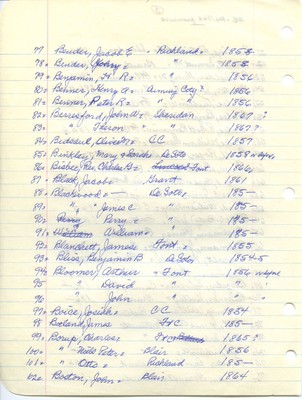 77 Bender, Jacob E. Richland 1855
78. Bender, Johnny " 1855
79. Benjamin, H. R. " 1856
80. Benner, Henry A. Cuming City? 1856
81. Benner, Peter R. " " 1856
82. Beresford, John W. Sheridan 1867?
83. " " " 1867?
84. C.C. 1857
85. Binkley, Mary DeSoto 1858 or before
86. Bisbee, Rev. Charles G. Font 1866
87. Black, Jacob Grant 1861
88. Blackwood — DeSoto 185-
89. " James C " 185-
90. Perry, Perry " 185-
91. William, William " 185-
92. Blanchett, James Font 1855
93. Bliss, Benjamin B DeSoto 1854-5
94. Bloomer, Arthur Font 1856
95 " David " "
96 " John " "
97 Boice, Josiah C.C 1854
98 Boland, James FtC 185-
99. Borup, Charles FtC 1865?
100. " Niels Peter Blair 1856
101. " Otto Richland 185-
102. Boston, John Blair 1864